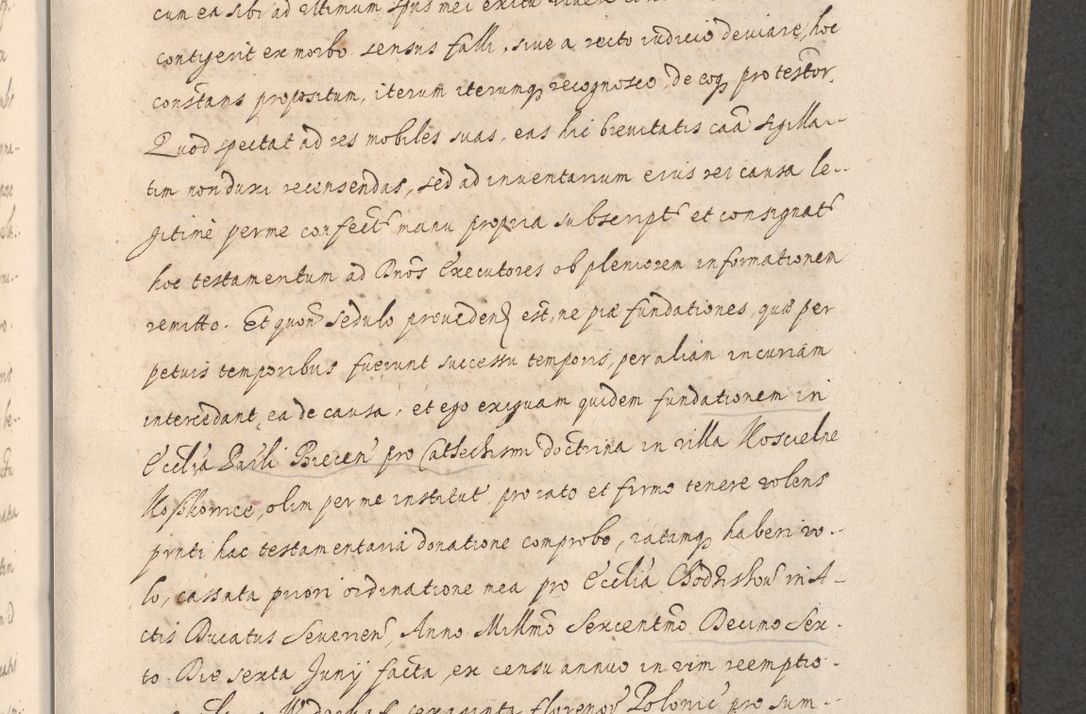 cum ea sibi ad ultimum spūs mei exitū
contigerit ex morbo sensus falli, sive a recto iudicio deviare, hoc
constans propositum, iterum iterumq̃ recognosco, de coq̃ protestor.
Quod spectat ad res mobiles suas, eas hic brevitatis caã sigilla-
tim non duxi recensendas, sed ad inventarium eius rei causa le-
gitimè per me confect̃ manu propria subscript̃ et consignat̃
hoc testamentum ad Dnōs Executores ob pleniorem informationem
remitto. Et quoñ sedulo providend̃ est, ne piæ fundationes, quæ per
petuis temporibus fuerunt successu temporis, per aliam incuriam
intercedant, ea de causa, et ego exiguam quidem fundationem in
Ecclīa Pauli Biecen̄ pro Cathechismi doctrina in villa Koscielne
olim per me institut̃, pro rato et firmo tenere volens
pr̃nti hac testamentaria donatione comprobo, ratamq̃ haberi vo-
lo, cassata priori ordinatione mea pro Ecclīa in A-
ctis Ducatus Severien̄, Anno Millm̄o Sexcentm̄o Decimo Sex-
to Die sexta Junij facta, ex censu annuo in vim reemptio-
sexaginta florenor̃ Polonic̃ pro sum-